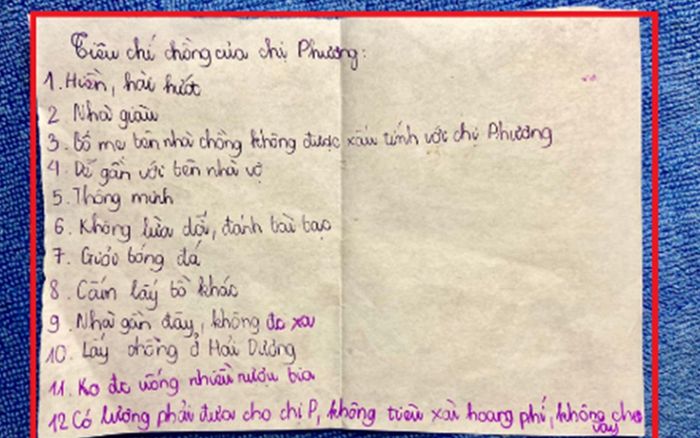 Tiêu chí chồng của chị Phương:
1. Hiền, hài hước
2. Nhà giàu
3. Bố mẹ bên nhà chồng không được xấu tính với chị Phương
4. Dễ gần với bên nhà vợ
5. Thông minh
6. Không lừa dối, đánh bài bạc
7. Gước bóng đá
8. Cấm lấy bồ khác
9. Nhà gần đây, không đc xa
10. Lấy chồng ở Hải Dương
11. Ko đc uống nhiều rượu bia
12 Có lương phải đưa cho chị P, không tiêu xài hoang phí, không cho
vay